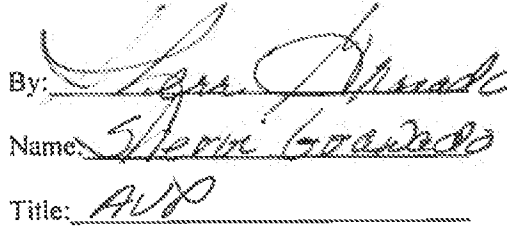 By:
Name: Sherri Granado
Title: AVP